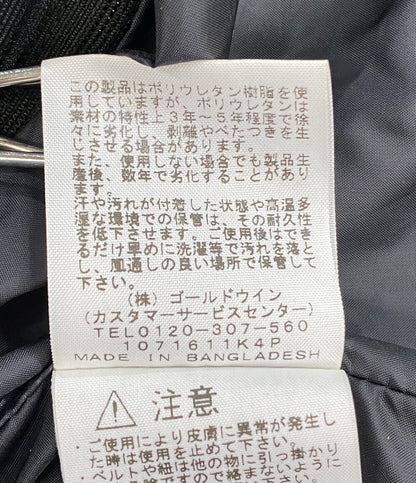 この製品はポリウレタン樹脂を使
用していますが、ポリウレタンは
素材の特性上3年～5年程度で徐
々に劣化し、剥離やべたつきを生
じさせる場合があります。
また、使用しない場合でも製品生
産後、数年で劣化することがあり
ます。
汗や汚れが付着した状態や高温多
湿な環境での保管は、その耐久性
を低下させます。ご使用後はでき
るだけ早めに洗濯等で汚れを落と
し、風通しの良い場所で保管して
下さい。
(株)ゴールドウイン
(カスタマーサービスセンター)
TEL0120-307-560
1071611K4P
MADE IN BANGLADESH
注意
・ご使用により皮膚に異常が発生し
た時は使用を止めて下さい。
・ベルトや紐は他の物に引っ掛かり
危険ですので絡まないように